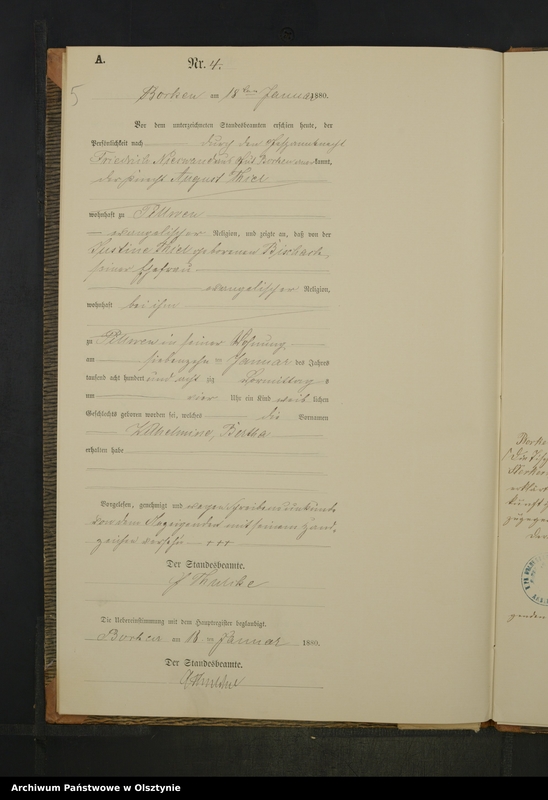 A.
Nr. 4.
5
Borken am 18ten Januar 1880.
Vor dem unterzeichneten Standesbeamten erschien heute, der
Persönlichkeit nach durch den
Friedrich kannt,
der Knecht August Thiel
wohnhaft zu
evangelischer Religion, und zeigte an, daß von der
Justine Thiel geborenen
seiner Ehefrau
evangelischer Religion,
wohnhaft bei ihm
zu in seiner Wohnung
am siebenzehnten Januar des Jahres
tausend acht hundert und achtzig Vormittags
um vier Uhr ein Kind weiblichen
Geschlechts geboren worden sei, welches die Vornamen
Wilhelmine, Bertha
erhalten habe
Vorgelesen, genehmigt und wegen Schreibensunkunde
von dem Anzeigenden mit seinem Hand-
zeichen versehen +++
Der Standesbeamte.
Die Uebereinstimmung mit dem Hauptregister beglaubigt.
Borken am 18ten Januar 1880.
Der Standesbeamte.
genden
Archiwum Państwowe w Olsztynie